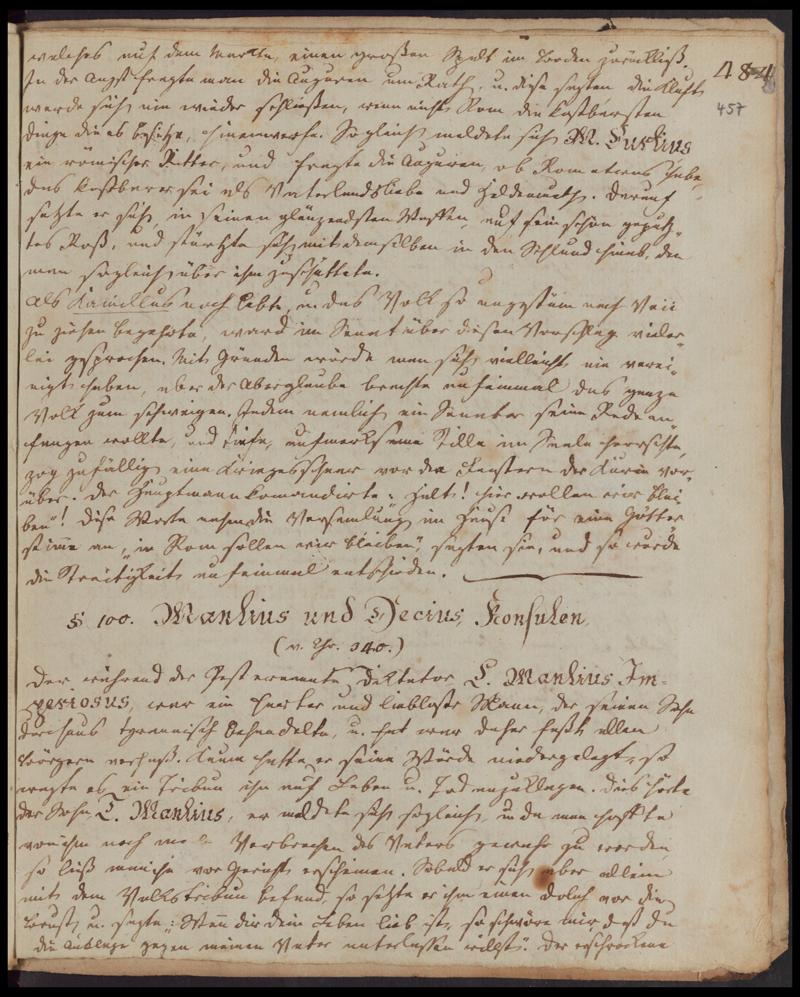 welches auf dem Markte, einen großen Spalt im Boden zurückließ.
484
In der Angst fragte man die Auguren um Rath, u. diese sagten die Kluft
457
werde sich nie wieder schließen, wenn nicht Rom die kostbarsten
Dinge die es besitze, hineinwerfe. Sogleich meldete sich M. Curtius
ein römischer Ritter, und fragte die Auguren, ob Rom etwas habe,
das kostbarer sei als Vaterlandsliebe und Heldenmuth. Darauf
setzte er sich, in seinen glänzendsten Waffen, auf sein schön geputz-
tes Roß, und stürtzte sich mit demselben in den Schlund hinab, den
man sogleich über ihm zuschüttete.
Als Kamillus noch lebte, u. das Volk so ungestüm nach Veii
zu ziehen begehrte, ward im Senat über diesen Vorschlag vieler-
lei gesprochen. Mit Gründen würde man sich vielleicht nie verei-
nigt haben, aber der Aberglaube brachte auf einmal das ganze
Volk zum schweigen. Indem nemlich ein Senator seine Rede an-
fangen wollte, und tiefe, aufmerksame Stille im Saale herrschte,
zog zufällig eine Kriegesschaar vor den Fenstern der Kurie vor-
über. Der Hauptmann komandirte: Halt! hier wollen wir blei-
ben"! Diese Worte nahm die Versamlung im Hause für eine Götter
stimme an, "in Rom sollen wir bleiben", sagten sie, und so wurde
die Streitigkeit auf einmal entschieden.
§ 100. Manlius und Decius, Konsulen
(v. Chr. 340.)
Der während der Pest ernannte Diktator L. Manlius Im-
periosus, war ein harter und liebloser Mann, der seinen Sohn
durchaus tyrannisch behandelte, u. war daher fast allen
Bürgern verhaßt. Kaum hatte er seine Würde niedergelegt, so
wagte es ein Tribun ihn auf Leben u. Tod anzuklagen. Dies hörte
der Sohn T. Manlius, er meldete sich sogleich, u. da man hoffte
von ihm noch Verbrechen des Vaters gewahr zu werden,
so ließ man ihn vor Gericht erscheinen. Sobald er sich aber allein
mit dem Volkstribun befand, so setzte er ihm einen Dolch vor die
Brust, u. sagte: "Wenn dir dein Leben lieb ist, so schwöre mir daß du
die Anklage gegen meinen Vater unterlassen willst". Der erschrockene